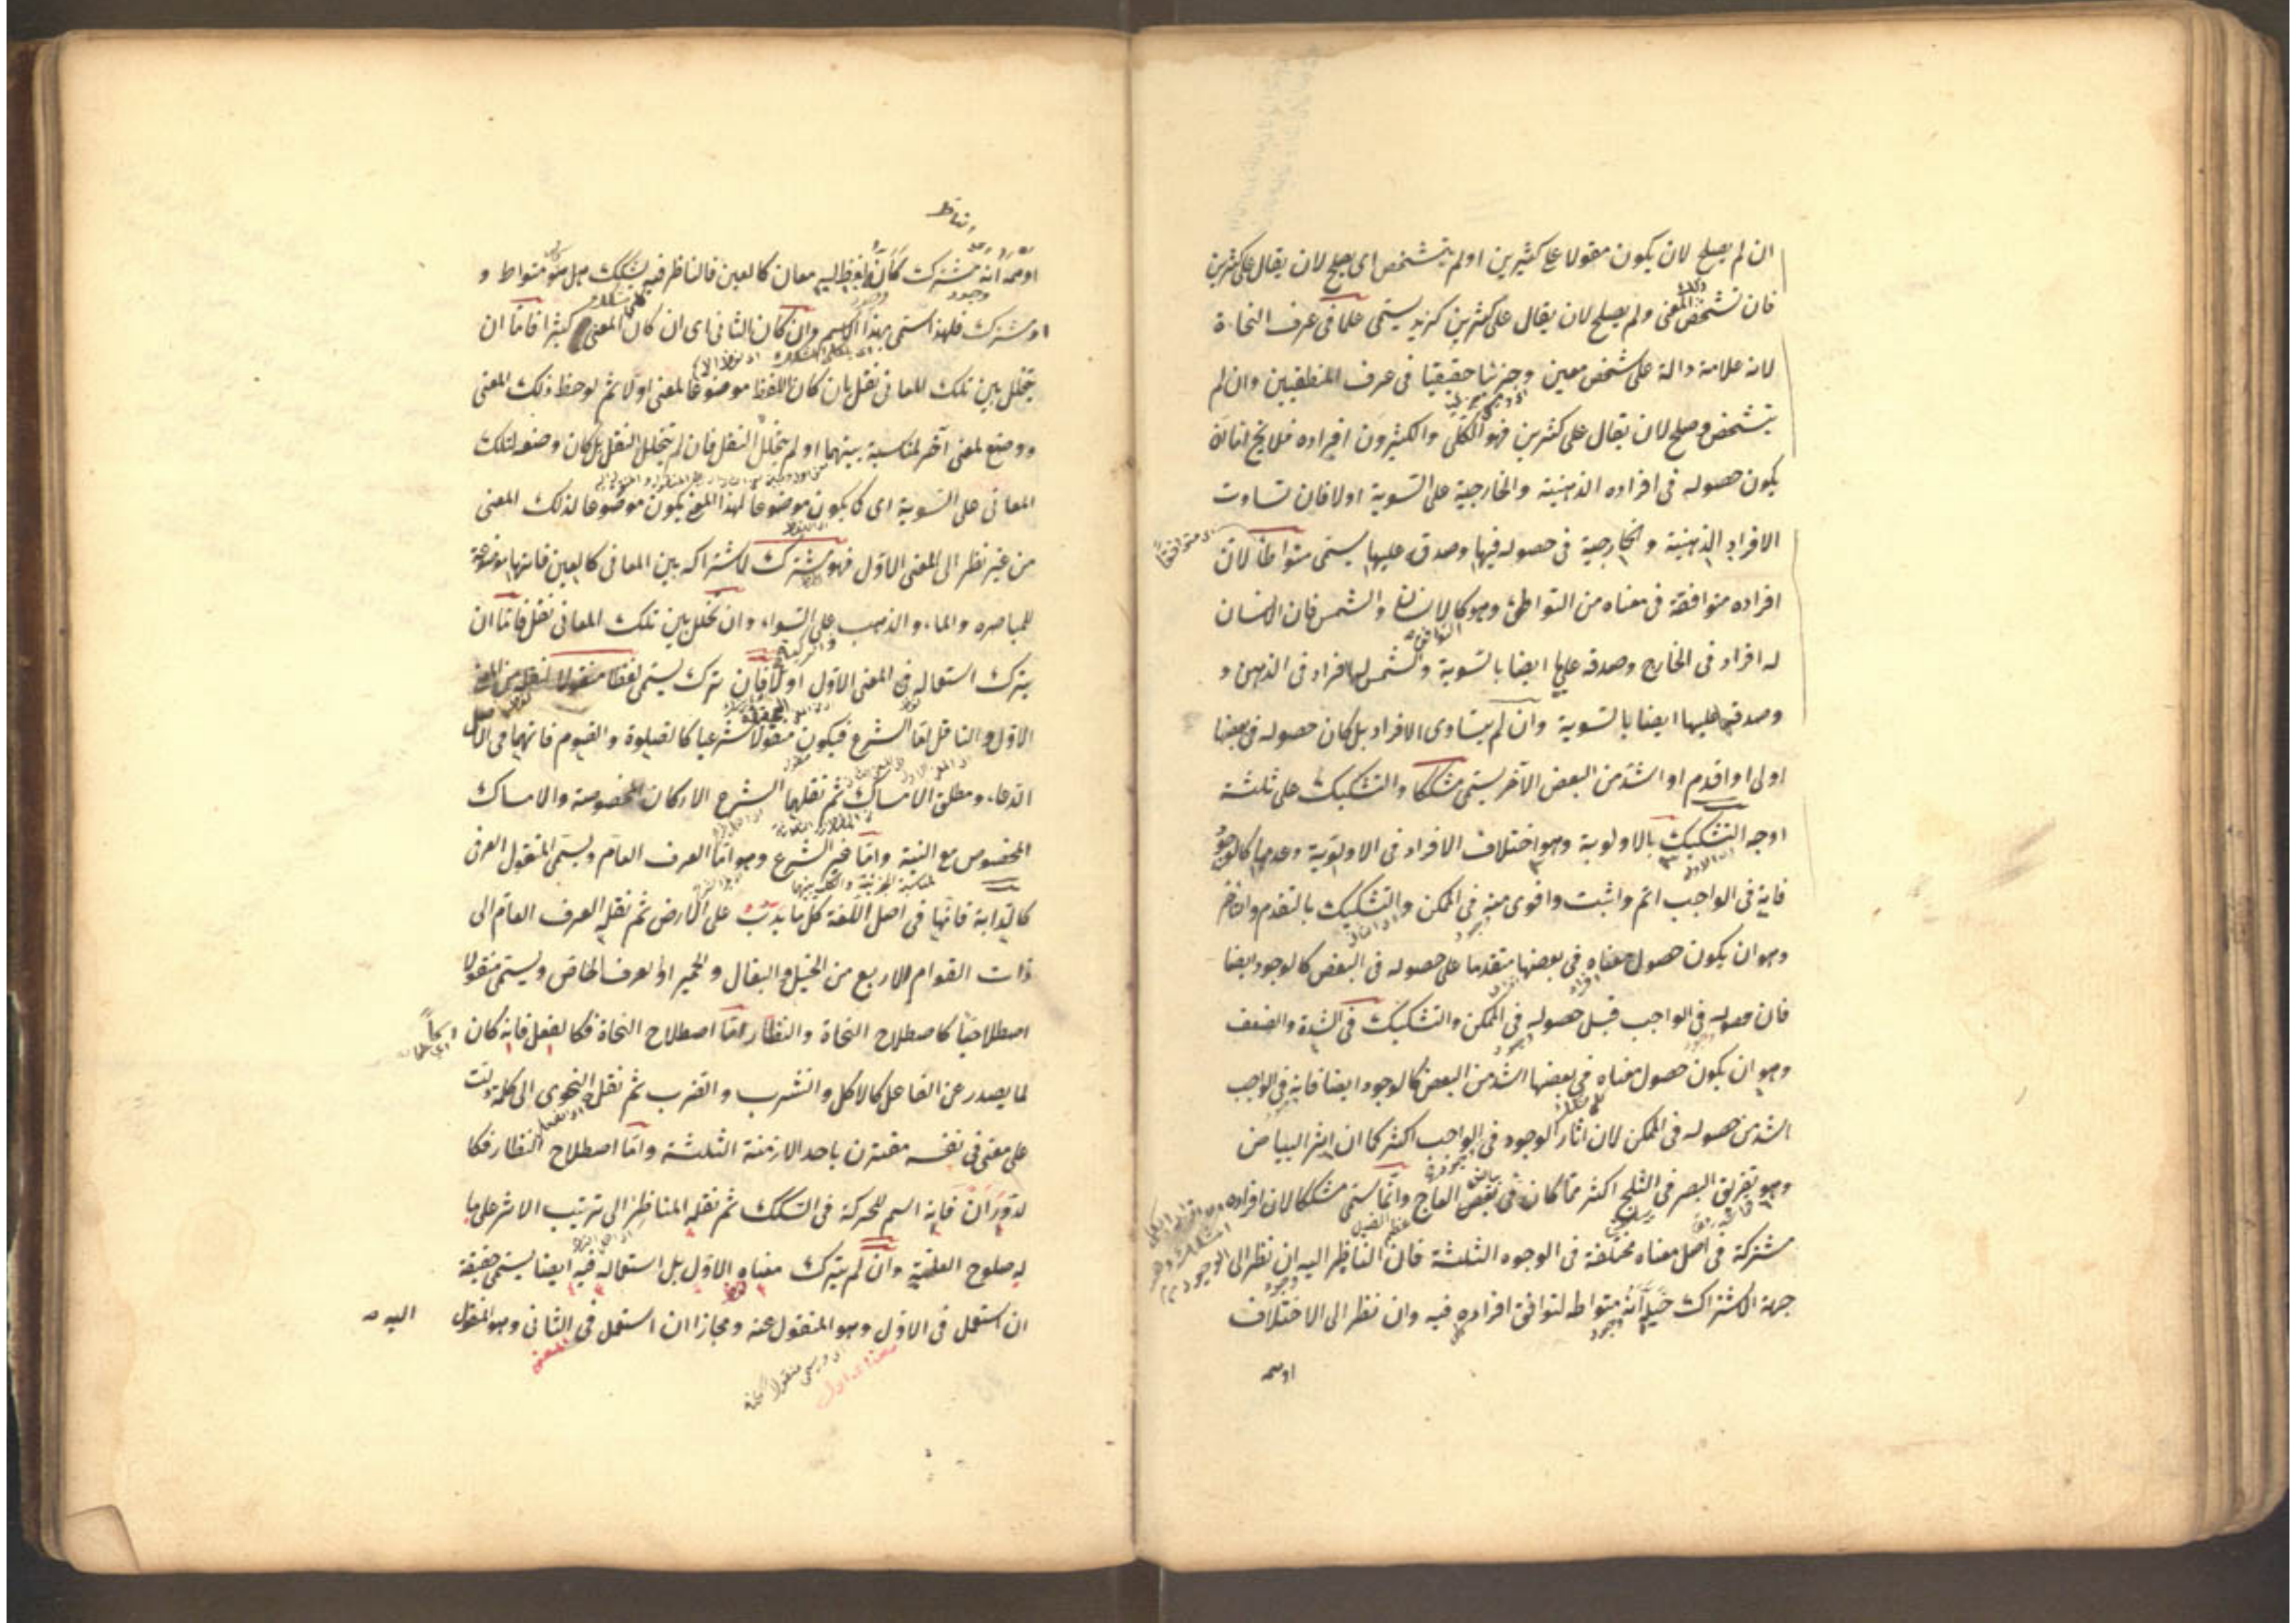 ان لم يصلح لان يكون مقولا على كثيرين او لم يتشخص اى يصلح لان يقال على كثيرين
فان تشخص المعنى ولم يصلح لان يقال على كثيرين كزيد يسمى علما فى عرف النحاة
لانه علامة دالة على شخص معين وجزئيا حقيقيا فى عرف المنطقيين وان لم
يتشخص وصلح لان يقال على كثيرين فهو الكلى والكثيرون افراده فلا يخ اما ان
يكون حصوله فى افراده الذهنية والخارجية على السوية اولا فان تساوت
الافراد الذهنية والخارجية فى حصوله فيها وصدقه عليها يسمى متواطئا لان
افراده متوافقة فى معناه من التواطئ وهو كالانسان والشمس فان الانسان
له افراد فى الخارج وصدقه عليها ايضا بالسوية والشمس لها افراد فى الذهن و
وصدقها عليها ايضا بالسوية وان لم يتساوى الافراد بل كان حصوله فى بعضها
اولى او اقدم او اشد من البعض الآخر يسمى مشككا والتشكيك على ثلثة
اوجه التشكيك بالاولوية وهو اختلاف الافراد فى الاولوية وعدمها كالوجود
فانه فى الواجب اتم واثبت واقوى منه فى الممكن والتشكيك بالتقدم والتاخر
وهو ان يكون حصول معناه فى بعضها متقدما على حصوله فى البعض كالوجود ايضا
فان حصوله فى الواجب قبل حصوله فى الممكن والتشكيك فى الشدة والضعف
وهو ان يكون حصول معناه فى بعضها اشد من البعض كالوجود ايضا فانه فى الواجب
اشد من حصوله فى الممكن لان اثار الوجود فى الواجب اكثر كما ان اثر البياض
وهو تفريق البصر فى الثلج اكثر مما كان فى العاج وانما سمى مشككا لان افراده
مشتركة فى اصل معناه مختلفة فى الوجوه الثلثة فان الناظر اليه ان نظر الى
جهة الاشتراك خيله انه متواط لتوافق افراده فيه وان نظر الى الاختلاف
اوهمه
اوهمه انه مشترك كأن لفظ له معان كالعين فالناظر فيه يشكك هل هو متواط و
او مشترك فلهذا سمى بهذا الاسم وان كان الثانى اى ان كان المعنى كثيرا فاما ان
يتخلل بين تلك المعانى نقل بان كان اللفظ موضوعا لمعنى اولا ثم لوحظ ذلك المعنى
ووضع لمعنى آخر لمناسبة بينهما او لم يتخلل النقل فان لم يتخلل النقل بل كان وضعه لتلك
المعانى على السوية اى كما يكون موضوعا لهذا المعنى يكون موضوعا لذلك المعنى
من غير نظر الى المعنى الاول فهو مشترك لاشتراكه بين المعانى كالعين فانها موضوعة
للباصره والماء والذهب على السواء وان تخلل بين تلك المعانى نقل فاما ان
يترك استعماله فى المعنى الاول اولا فان ترك يسمى لفظا منقولا لنقله من المعنى
الاول والناقل اما الشرع فيكون منقولا شرعيا كالصلوة والصوم فانهما فى الاصل
الدعاء ومطلق الامساك ثم نقلهما الشرع الاركان المخصوصة والامساك
المخصوص مع النية واما غير الشرع وهو اما العرف العام ويسمى المنقول العرفى
كالدابة فانها فى اصل اللغة كل ما يدب على الارض ثم نقله العرف العام الى
ذات القوام الاربع من الخيل والبغال والحمير او العرف الخاص ويسمى منقولا
اصطلاحيا كاصطلاح النحاة والنظار اما اصطلاح النحاة فكالفعل فانه كان
لما يصدر عن الفاعل كالاكل والشرب والضرب ثم نقل النحوى الى كلمة دلت
على معنى فى نفسه مقترن باحد الازمنة الثلثة واما اصطلاح النظار فكا
لدوران فانه اسم للحركة فى السكك ثم نقله المناظر الى ترتيب الاثر على ما
له صلوح العلية وان لم يترك معناه الاول بل استعماله فيه ايضا يسمى حقيقة
ان استعمل فى الاول وهو المنقول عنه ومجازا ان استعمل فى الثانى وهو المنقول
اليه